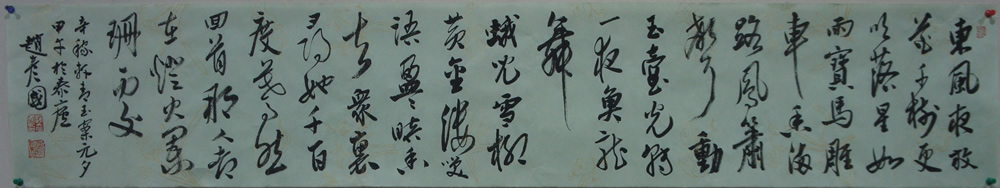 東風夜放
花千樹更
吹落星如
雨寶馬雕
車香滿
路鳳簫
聲動
玉壺光轉
一夜魚龍
舞
蛾兒雪柳
黃金縷笑
語盈盈暗香
去眾裏
尋她千百
度驀然
回首那人卻
在燈火闌
珊處
辛稼軒青玉案元夕
甲午於泰廬
趙彥國